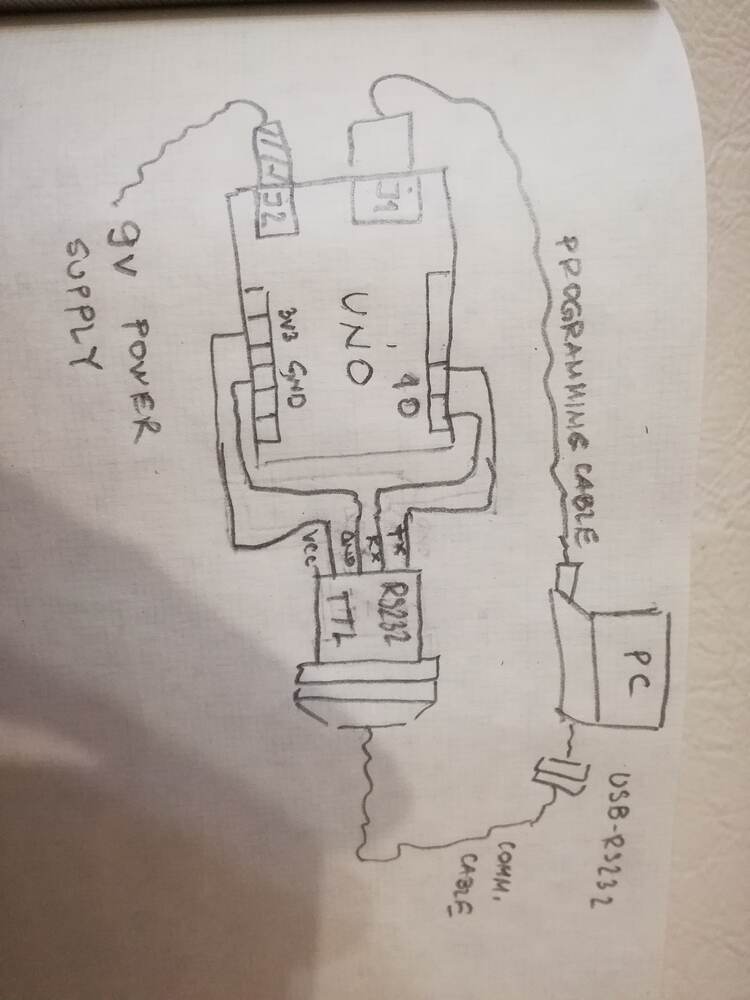 PROGRAMMING CABLE
PC
USB-RS232
COMM.
CABLE
J1
J2
UNO
1 0
3V3 GND
TX
RX
GND
VCC
RS232
TTL
9V POWER
SUPPLY